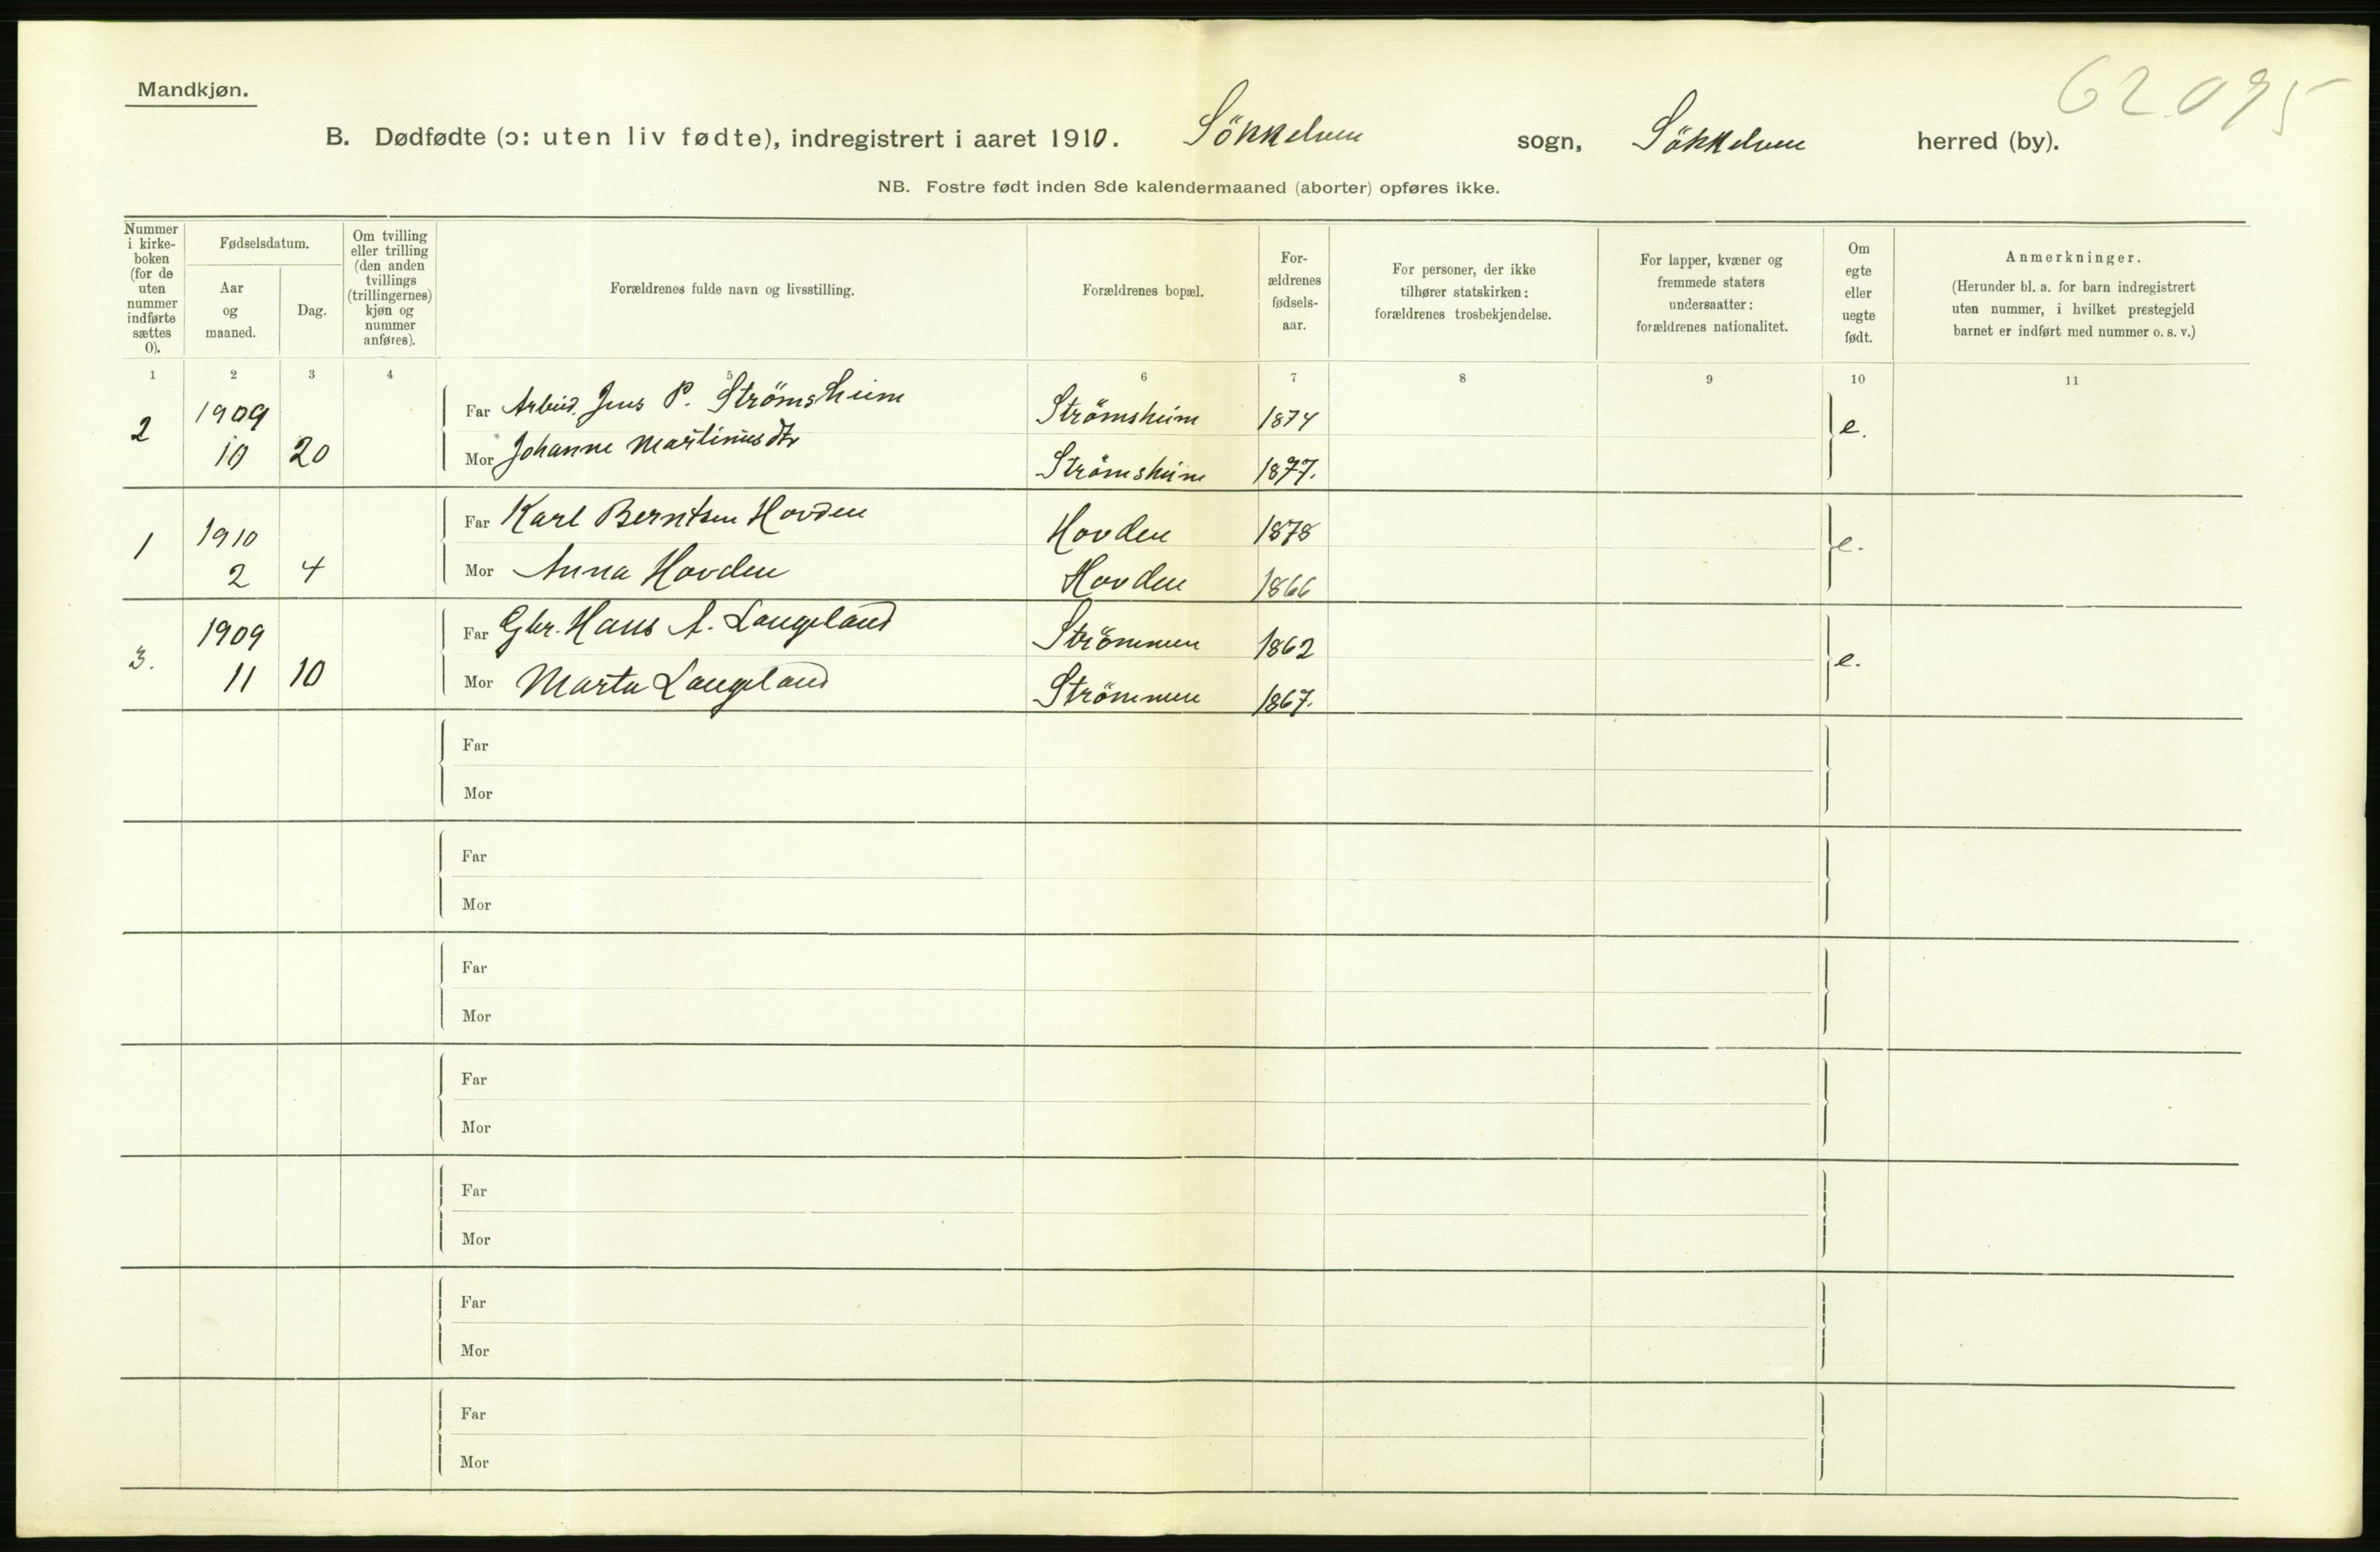 62.095
Mandkjøn.
B. Dødfødte (ɔ: uten liv fødte), indregistrert i aaret 1910. Sökkelven sogn, Sökkelven herred (by).
NB. Fostre født inden 8de kalendermaaned (aborter) opføres ikke.
Nummer
i kirke-
boken
(for de
uten
nummer
indførte
sættes
0).
Fødselsdatum.
Aar
og
maaned.
Dag.
Om tvilling
eller trilling
(den anden
tvillings
(trillingernes)
kjøn og
nummer
anføres).
Forældrenes fulde navn og livsstilling.
Forældrenes bopæl.
For-
ældrenes
fødsels-
aar.
For personer, der ikke
tilhører statskirken:
forældrenes trosbekjendelse.
For lapper, kvæner og
fremmede staters
undersaatter:
forældrenes nationalitet.
Om
egte
eller
uegte
født.
Anmerkninger.
(Herunder bl. a. for barn indregistrert
uten nummer, i hvilket prestegjeld
barnet er indført med nummer o. s. v.)
1 2 3 4 5 6 7 8 9 10 11
2 1909 Far Arbeid. Jens P. Strömsheim Strömsheim 1874 e.
10 20 Mor Johanne Martinusdtr Strömsheim 1877.
1 1910 Far Karl Berntsen Hovden Hovden 1878 e.
2 4 Mor Anna Hovden Hovden 1866
3. 1909 Far Gbr. Hans A. Langeland Strömmen 1862 e.
11 10 Mor Marta Langeland Strömmen 1867.
Far
Mor
Far
Mor
Far
Mor
Far
Mor
Far
Mor
Far
Mor
Far
Mor